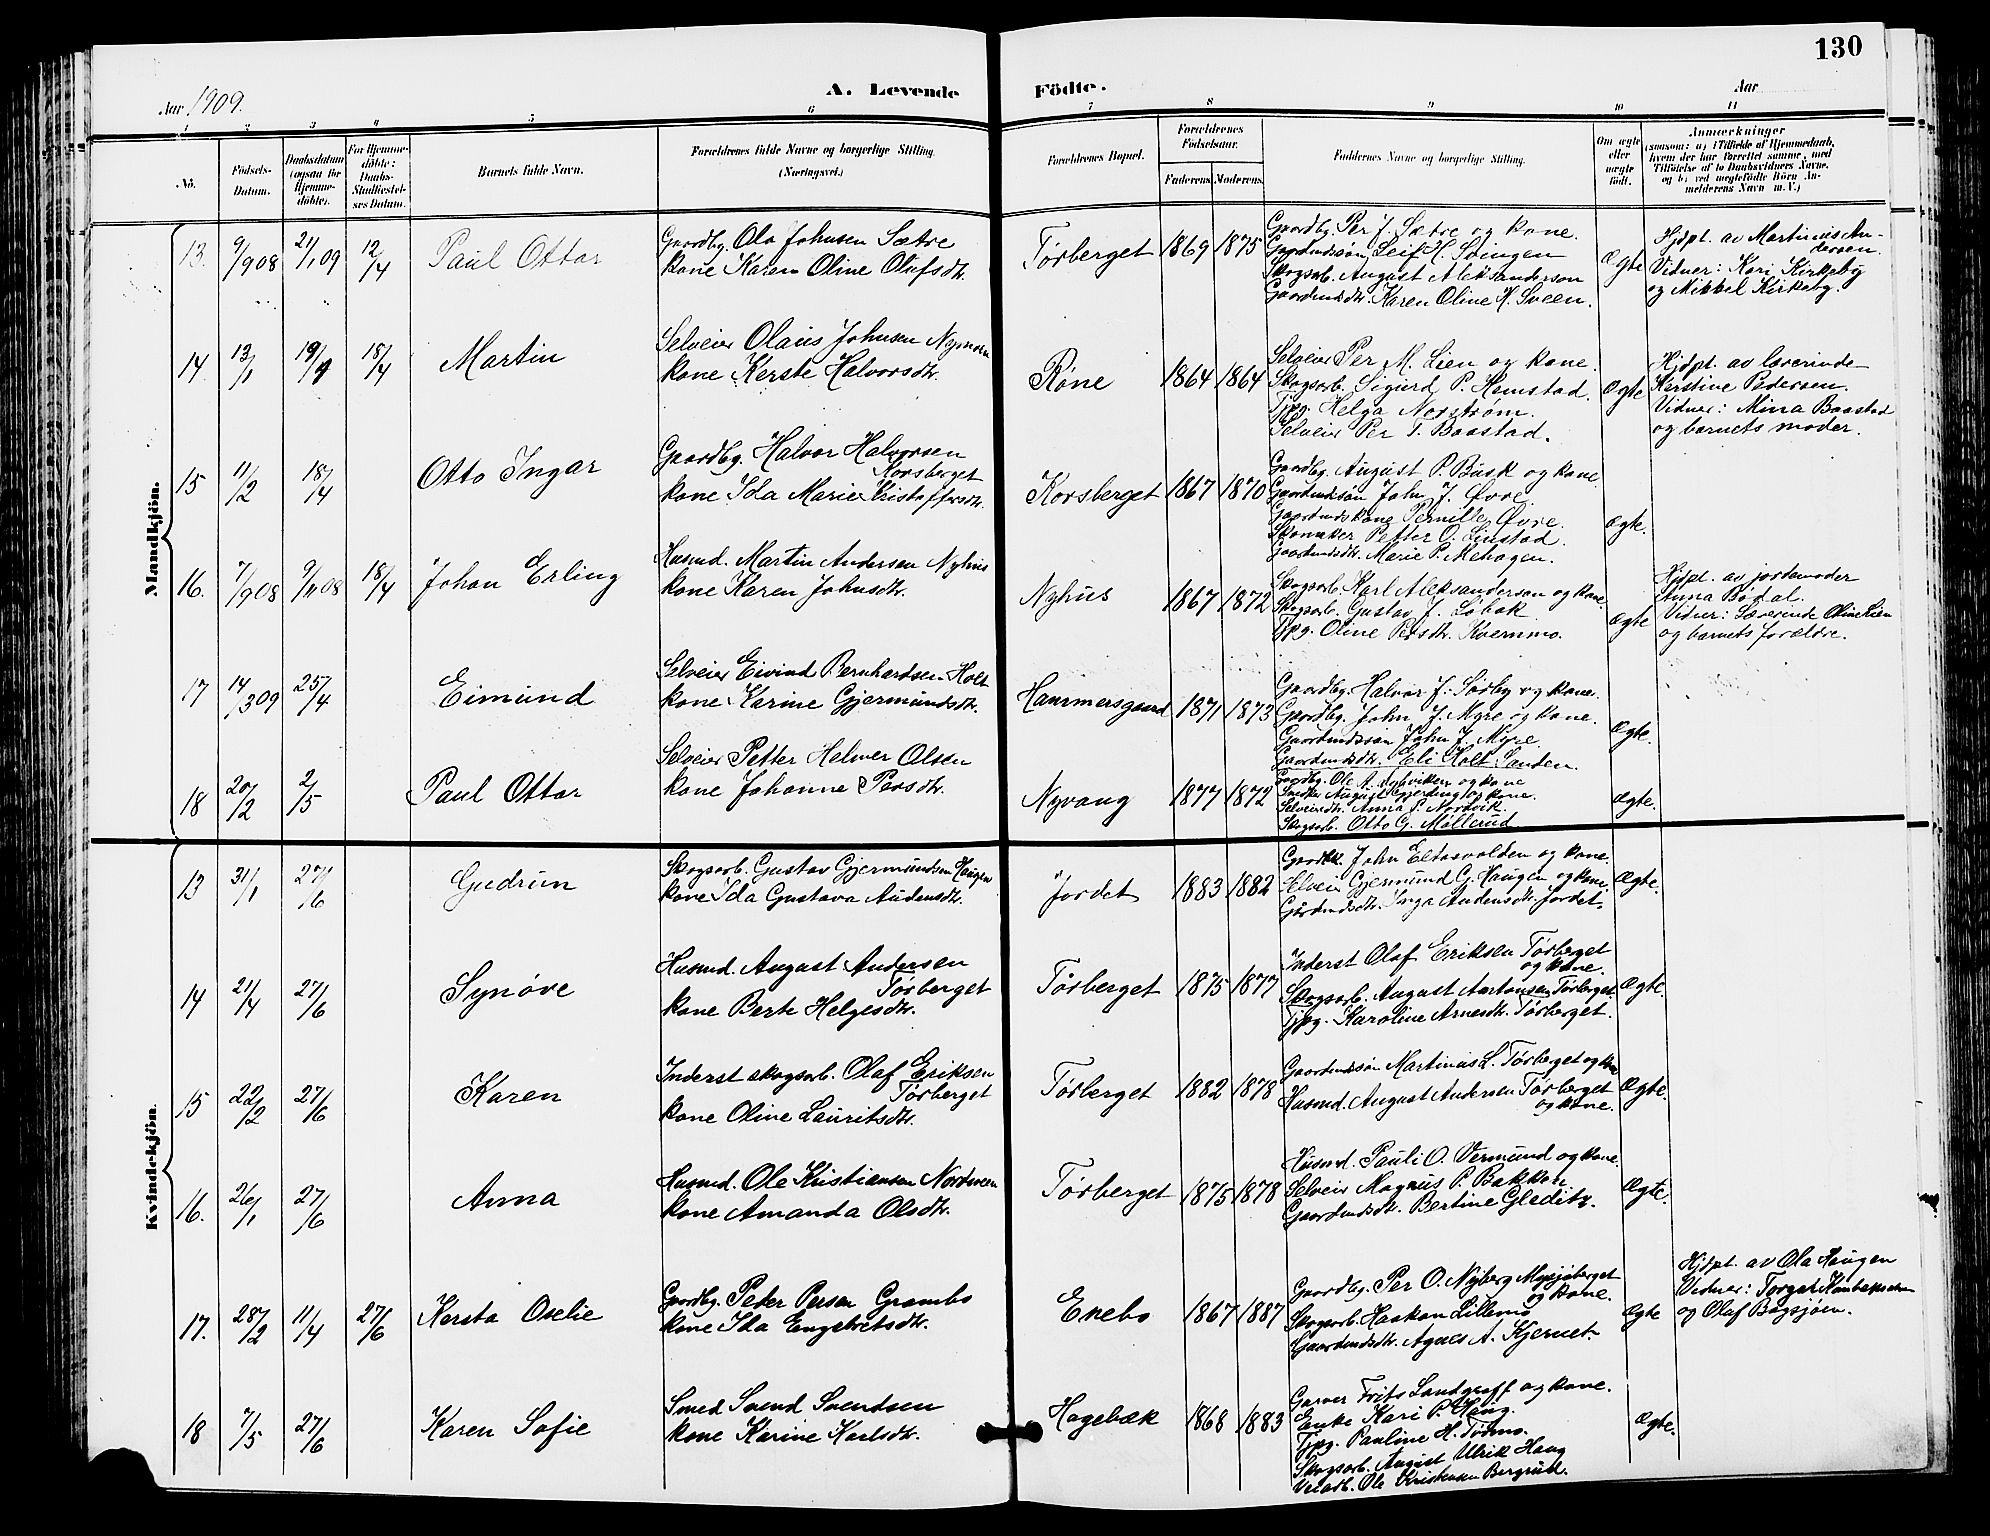 130
Aar 1909.
A. Levende
Födte.
Aar
1 2 3 4 5 6 7 8 9 10 11
No.
Födsels-
Datum.
Daabsdatum
(ogsaa for
Hjemme-
döbte).
For Hjemme-
döbte:
Daabs-
Stadfæstel-
ses Datum.
Barnets fulde Navn.
Forældrenes fulde Navne og borgerlige Stilling.
(Næringsvei.)
Forældrenes Bopæl.
Forældrenes
Födselsaar.
Faderens. Moderens.
Faddernes Navne og borgerlige Stilling.
Om ægte
eller
uægte
födt.
Anmærkninger
(saasom: a) i Tilfælde af Hjemmedaab,
hvem der har forrettet samme, med
Tilföielse af to Daabsvidners Navne,
og b) ved uægtefödte Börn An-
melderens Navn m. V.)
Mandkjön.
13 9/9 08 21/1 09 12/4 Paul Ottar
Gaardbg. Ola Johnsen Sætre
kone Karen Oline Olufsdtr.
Tørberget 1869 1875
Gaardbg. Per J. Sætre og kone.
Gaardmdssøn Leif H. Stingen
Skogsarb. August Aleksandersen
Gaardmdsdtr. Karen Oline H. Sveen.
Ægte
Hjdpt. av Martinus An-
dersen.
Vidner: Kari Kirkeby
og Mikkel Kirkeby.
14 13/1 19/1 18/4 Martin
Selveier Olaus Johnsen Nymoen
kone Kerste Halvorsdtr.
Røne 1864 1864
Selveier Per M. Lien og kone.
Skogsarb. Sigurd P. Hemstad.
Tjpg. Helga Norstrøm.
Selveier Per T. Baastad.
Ægte
Hjdpt. av lærerinde
Kerstine Pedersen.
Vidner: Mina Baastad
og barnets moder.
15 11/2 18/4 Otto Ingar
Gaardbg. Halvor Halvorsen
Korsberget
kone Ida Marie Kristoffersdtr.
Korsberget 1867 1870
Gaardbg. August P. Busk og kone
Gaardmdssøn John J. Øvre.
Gaardmdskone Pernille Øvre.
Skomaker Petter O. Linstad.
Gaardmdsdtr. Marie P. Mehagen.
Ægte.
16. 7/9 08 9/11 08 18/4 Johan Erling
Husmd. Martin Andersen Nyhus
kone Karen Johnsdtr.
Nyhus 1867 1872
Skogsarb. Karl Aleksandersen og kone.
Skogsarb. Gustav J. Løbak.
Tjpg. Oline Persdtr. Kvernmo.
Ægte
Hjdpt. av jordemoder
Anna Bødal.
Vidner: Lærerinde Oline Lien
og barnets forældre.
17 14/3 09 25/4 Eimund
Selveier Eivind Bernhardsen Holt
kone Karine Gjermundsdtr.
Hammersgaard 1871 1873
Gaardbg. Halvor J. Sørby og kone.
Gaardbg. John J. Myre og kone.
Gaardmdssøn John J. Myre.
Gaardmdsdtr. Eli Holt Sanden.
Ægte.
18 20/2 2/5 Paul Ottar
Selveier Petter Helmer Olsen
kone Johanne Persdtr.
Nyvang 1877 1872
Gaardbg. Ole A. Nyhviken og kone
Smeds August Gjerding og kone.
Selveierdtr. Anna P. Nordvik.
Skogsarb. Otto G. Møllerud
Ægte.
Kvindekjön.
13 31/1 27/6 Gudrun
Skogsarb. Gustav Gjermundsen Haugen
kone Ida Gustava Audensdtr.
Jordet 1883 1882
Gaardbr. John Eltasvolden og kone.
Selveier Gjermund G. Haugen og kone.
Gårdmdsdtr. Inga Audensdtr. Jordet.
Ægte.
14 21/4 27/6 Synøve
Husmd. August Andersen
Tørberget
kone Berte Helgesdtr.
Tørberget 1875 1877
Inderst Olaf Eriksen Tørberget
og kone.
Skogsarb. August Aartansen Tørberget.
Tjpg. Karoline Arnesdtr. Tørberget.
Ægte.
15 22/2 27/6 Karen
Inderst skogsarb. Olaf Eriksen
Tørberget
kone Oline Lauritsdtr.
Tørberget 1882 1878
Gaardmdssøn Martinus L. Tørberget og kone
Husmd. August Andersen Tørberget
og kone.
Ægte.
16. 26/1 27/6 Anna
Husmd. Ole Kristiansen Nordmoen
kone Amanda Olsdtr.
Tørberget 1875 1878
Husmd. Pauli O. Vermund og kone.
Selveier Magnus P. Bakken.
Gaardmdsdtr. Bertine Gleditz.
Ægte.
17. 28/2 11/4 27/6 Kersta Oselie
Gaardbg. Peter Persen Grambo
kone Ida Engebretsdtr.
Enebo 1867 1887
Gaardbg. Per O. Nyberg Mysjøberget
og kone.
Skogsarb. Haakon Lillemo
Gaardmdsdtr. Agnes A. Kjernet.
Ægte
Hjdpt. av Ola Haugen
Vidner: Torgar
og Olaf Bogsjøen.
18 7/5 27/6 Karen Sofie
Smed Svend Svendsen
kone Karine Karlsdtr.
Hagebæk 1868 1883
Garver Frits Landgraff og kone.
Enke Kari P. Haug.
Tjpg. Pauline H. Tørmo.
Skogsarb. August Ulrik Haug
Veiarb. Ole Kristensen Bergrud.
Ægte.